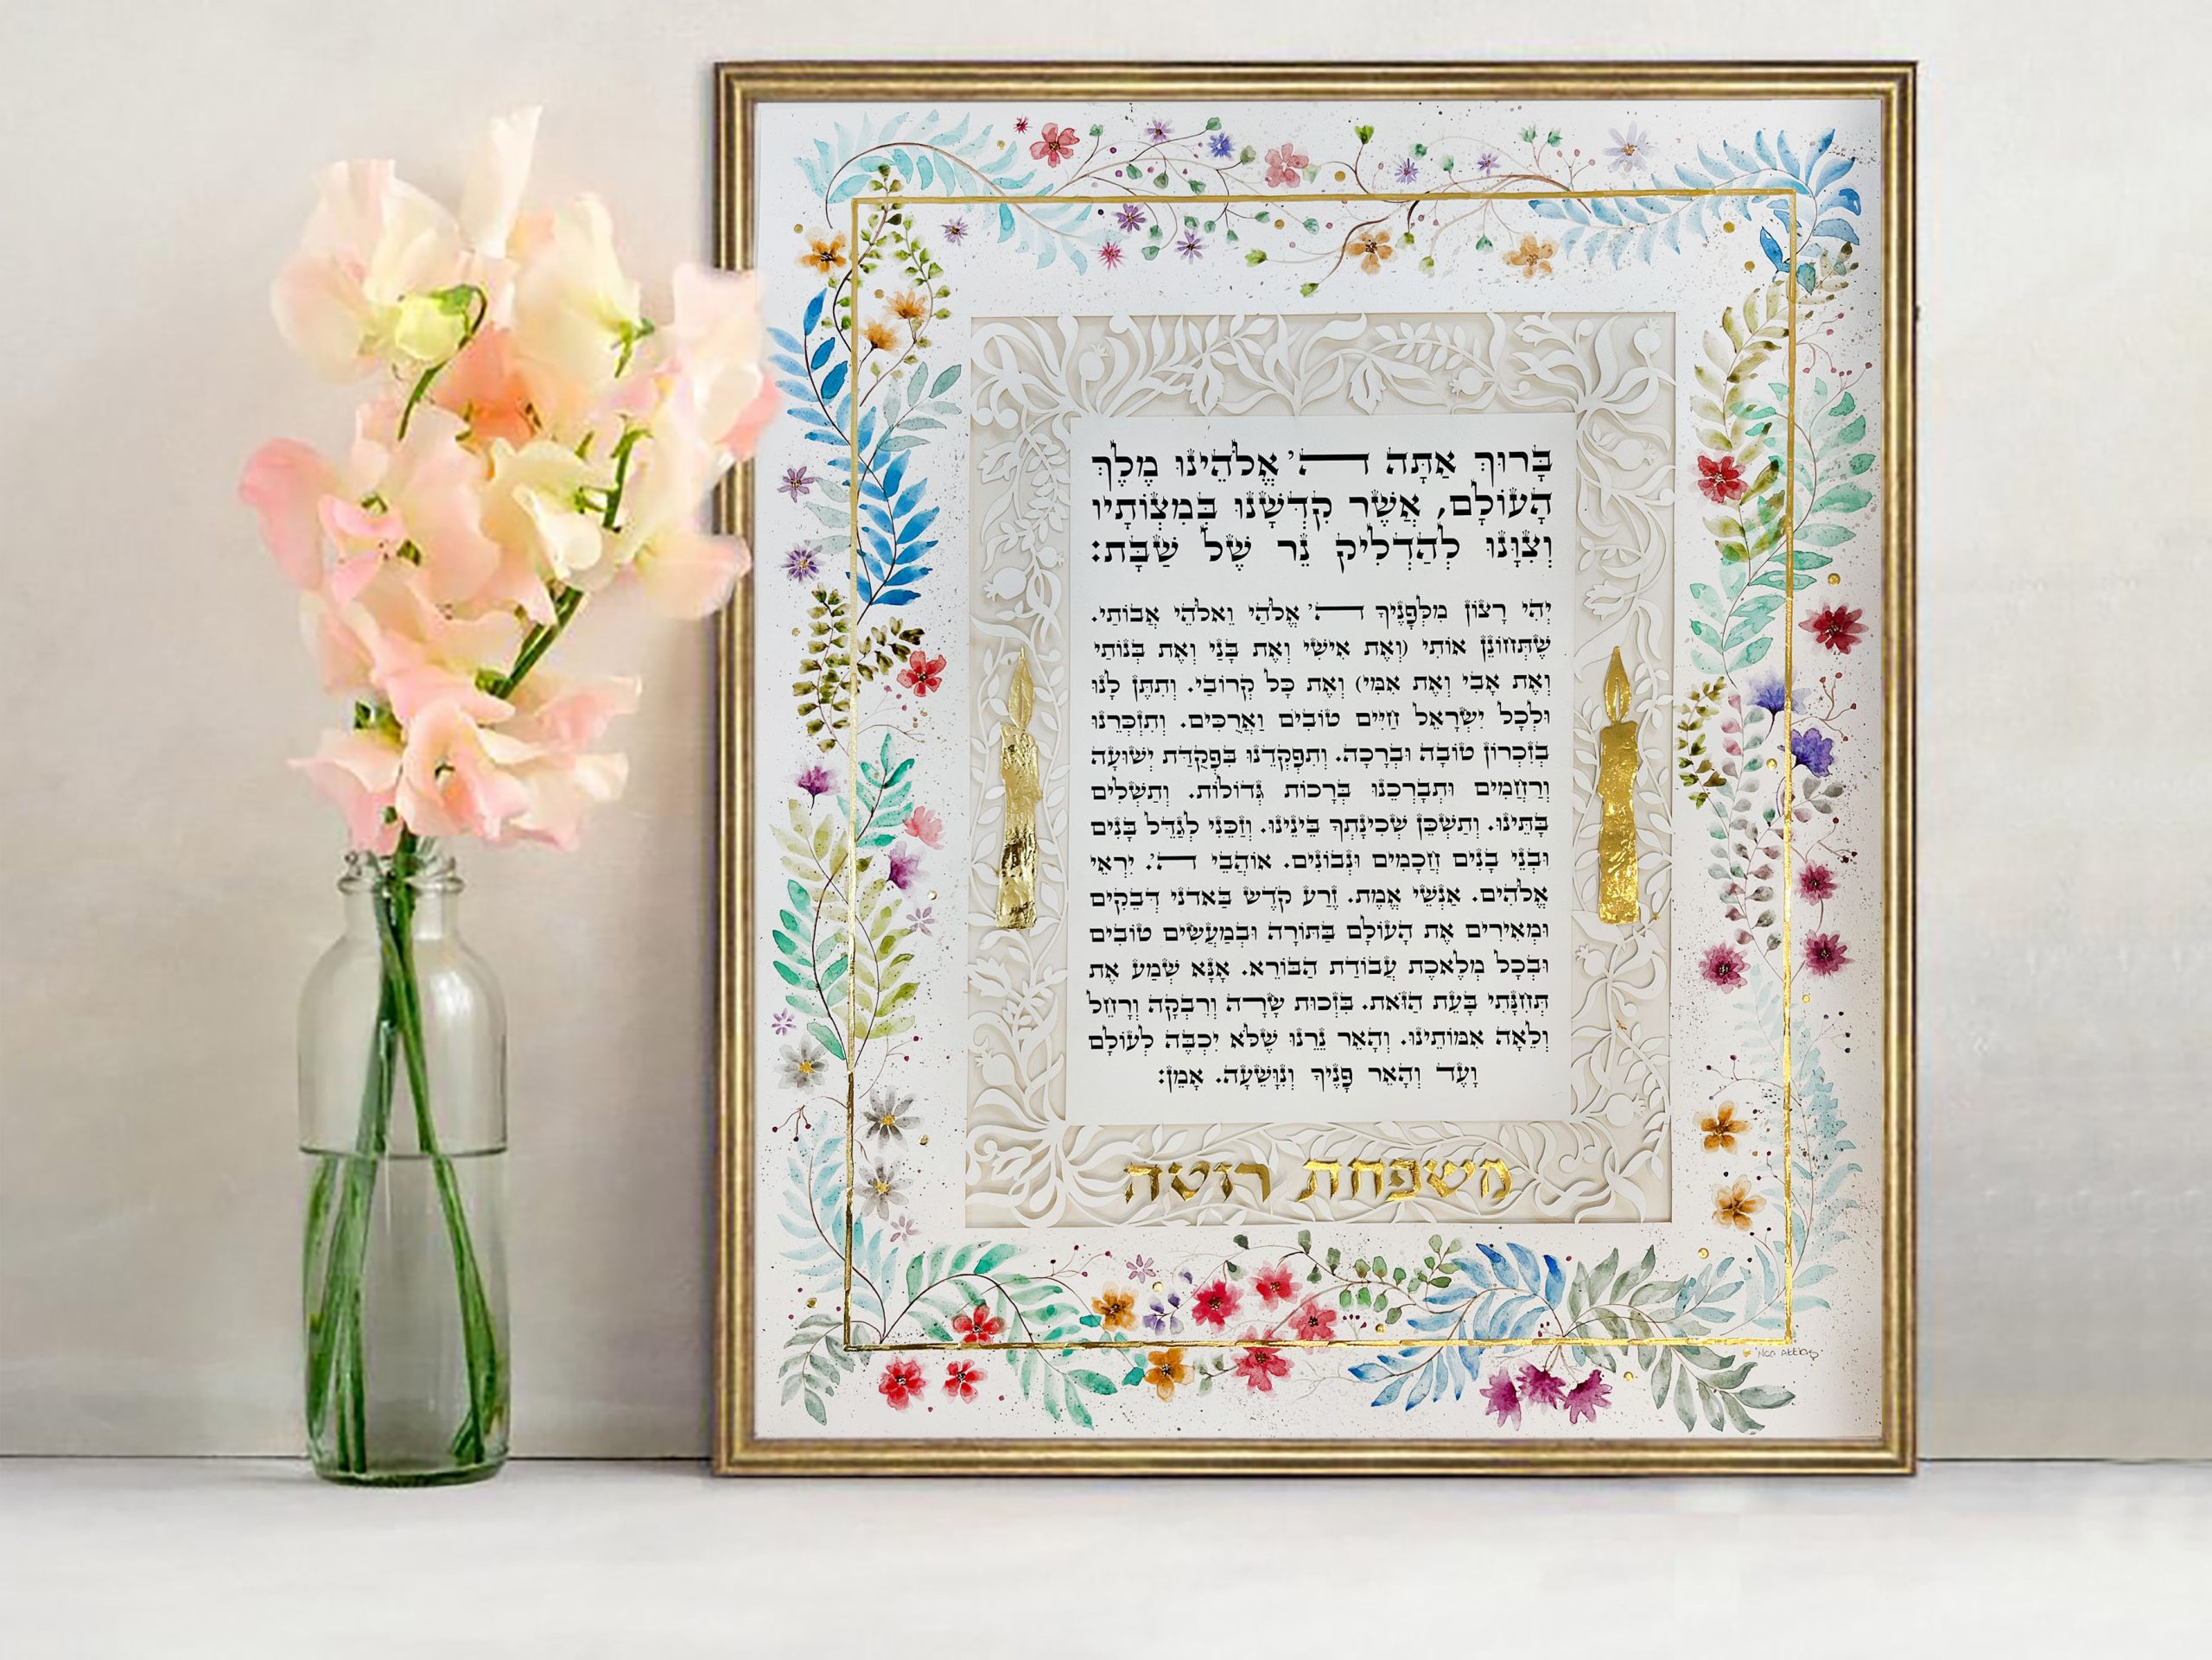 בָּרוּךְ אַתָּה ה' אֱלֹהֵינוּ מֶלֶךְ
הָעוֹלָם, אֲשֶׁר קִדְּשָׁנוּ בְּמִצְוֹתָיו
וְצִוָּנוּ לְהַדְלִיק נֵר שֶׁל שַׁבָּת:
יְהִי רָצוֹן מִלְּפָנֶיךָ ה' אֱלֹהַי וֵאלֹהֵי אֲבוֹתַי.
שֶׁתְּחוֹנֵן אוֹתִי (וְאֶת אִישִׁי וְאֶת בָּנַי וְאֶת בְּנוֹתַי
וְאֶת אָבִי וְאֶת אִמִּי) וְאֶת כָּל קְרוֹבַי. וְתִתֶּן לָנוּ
וּלְכָל יִשְׂרָאֵל חַיִּים טוֹבִים וַאֲרֻכִּים. וְתִזְכְּרֵנוּ
בְּזִכְרוֹן טוֹבָה וּבְרָכָה. וְתִפְקְדֵנוּ בִּפְקֻדַּת יְשׁוּעָה
וְרַחֲמִים וּתְבָרְכֵנוּ בְּרָכוֹת גְּדוֹלוֹת. וְתַשְׁלִים
בָּתֵּינוּ. וְתַשְׁכֵּן שְׁכִינָתְךָ בֵּינֵינוּ. וְזַכֵּנִי לְגַדֵּל בָּנִים
וּבְנֵי בָנִים חֲכָמִים וּנְבוֹנִים. אוֹהֲבֵי ה'. יִרְאֵי
אֱלֹהִים. אַנְשֵׁי אֱמֶת. זֶרַע קֹדֶשׁ בַּאדֹנָי דְּבֵקִים
וּמְאִירִים אֶת הָעוֹלָם בַּתּוֹרָה וּבְמַעֲשִׂים טוֹבִים
וּבְכָל מְלֶאכֶת עֲבוֹדַת הַבּוֹרֵא. אָנָּא שְׁמַע אֶת
תְּחִנָּתִי בָּעֵת הַזֹּאת. בִּזְכוּת שָׂרָה וְרִבְקָה וְרָחֵל
וְלֵאָה אִמּוֹתֵינוּ. וְהָאֵר נֵרֵנוּ שֶׁלֹּא יִכְבֶּה לְעוֹלָם
וָעֶד וְהָאֵר פָּנֶיךָ וְנִוָּשֵׁעָה. אָמֵן:
משפחת רוטה